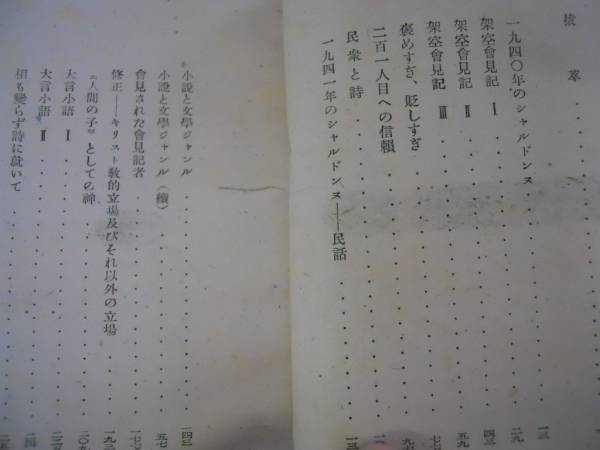 抜萃
一九四〇年のシャルドンヌ 一三
架空會見記 Ⅰ 二九
架空會見記 Ⅱ 四三
架空會見記 Ⅲ 五九
褒めすぎ、貶しすぎ
二百一人目への信賴
民衆と詩
一九四一年のシャルドンヌ——民話
小說と文學ジャンル
小說と文學ジャンル（續）
會見された會見記者
修正——キリスト敎的立場及びそれ以外の立場
『人間の子』としての神
大言小語 Ⅰ
大言小語 Ⅱ
相も變らず詩に就いて